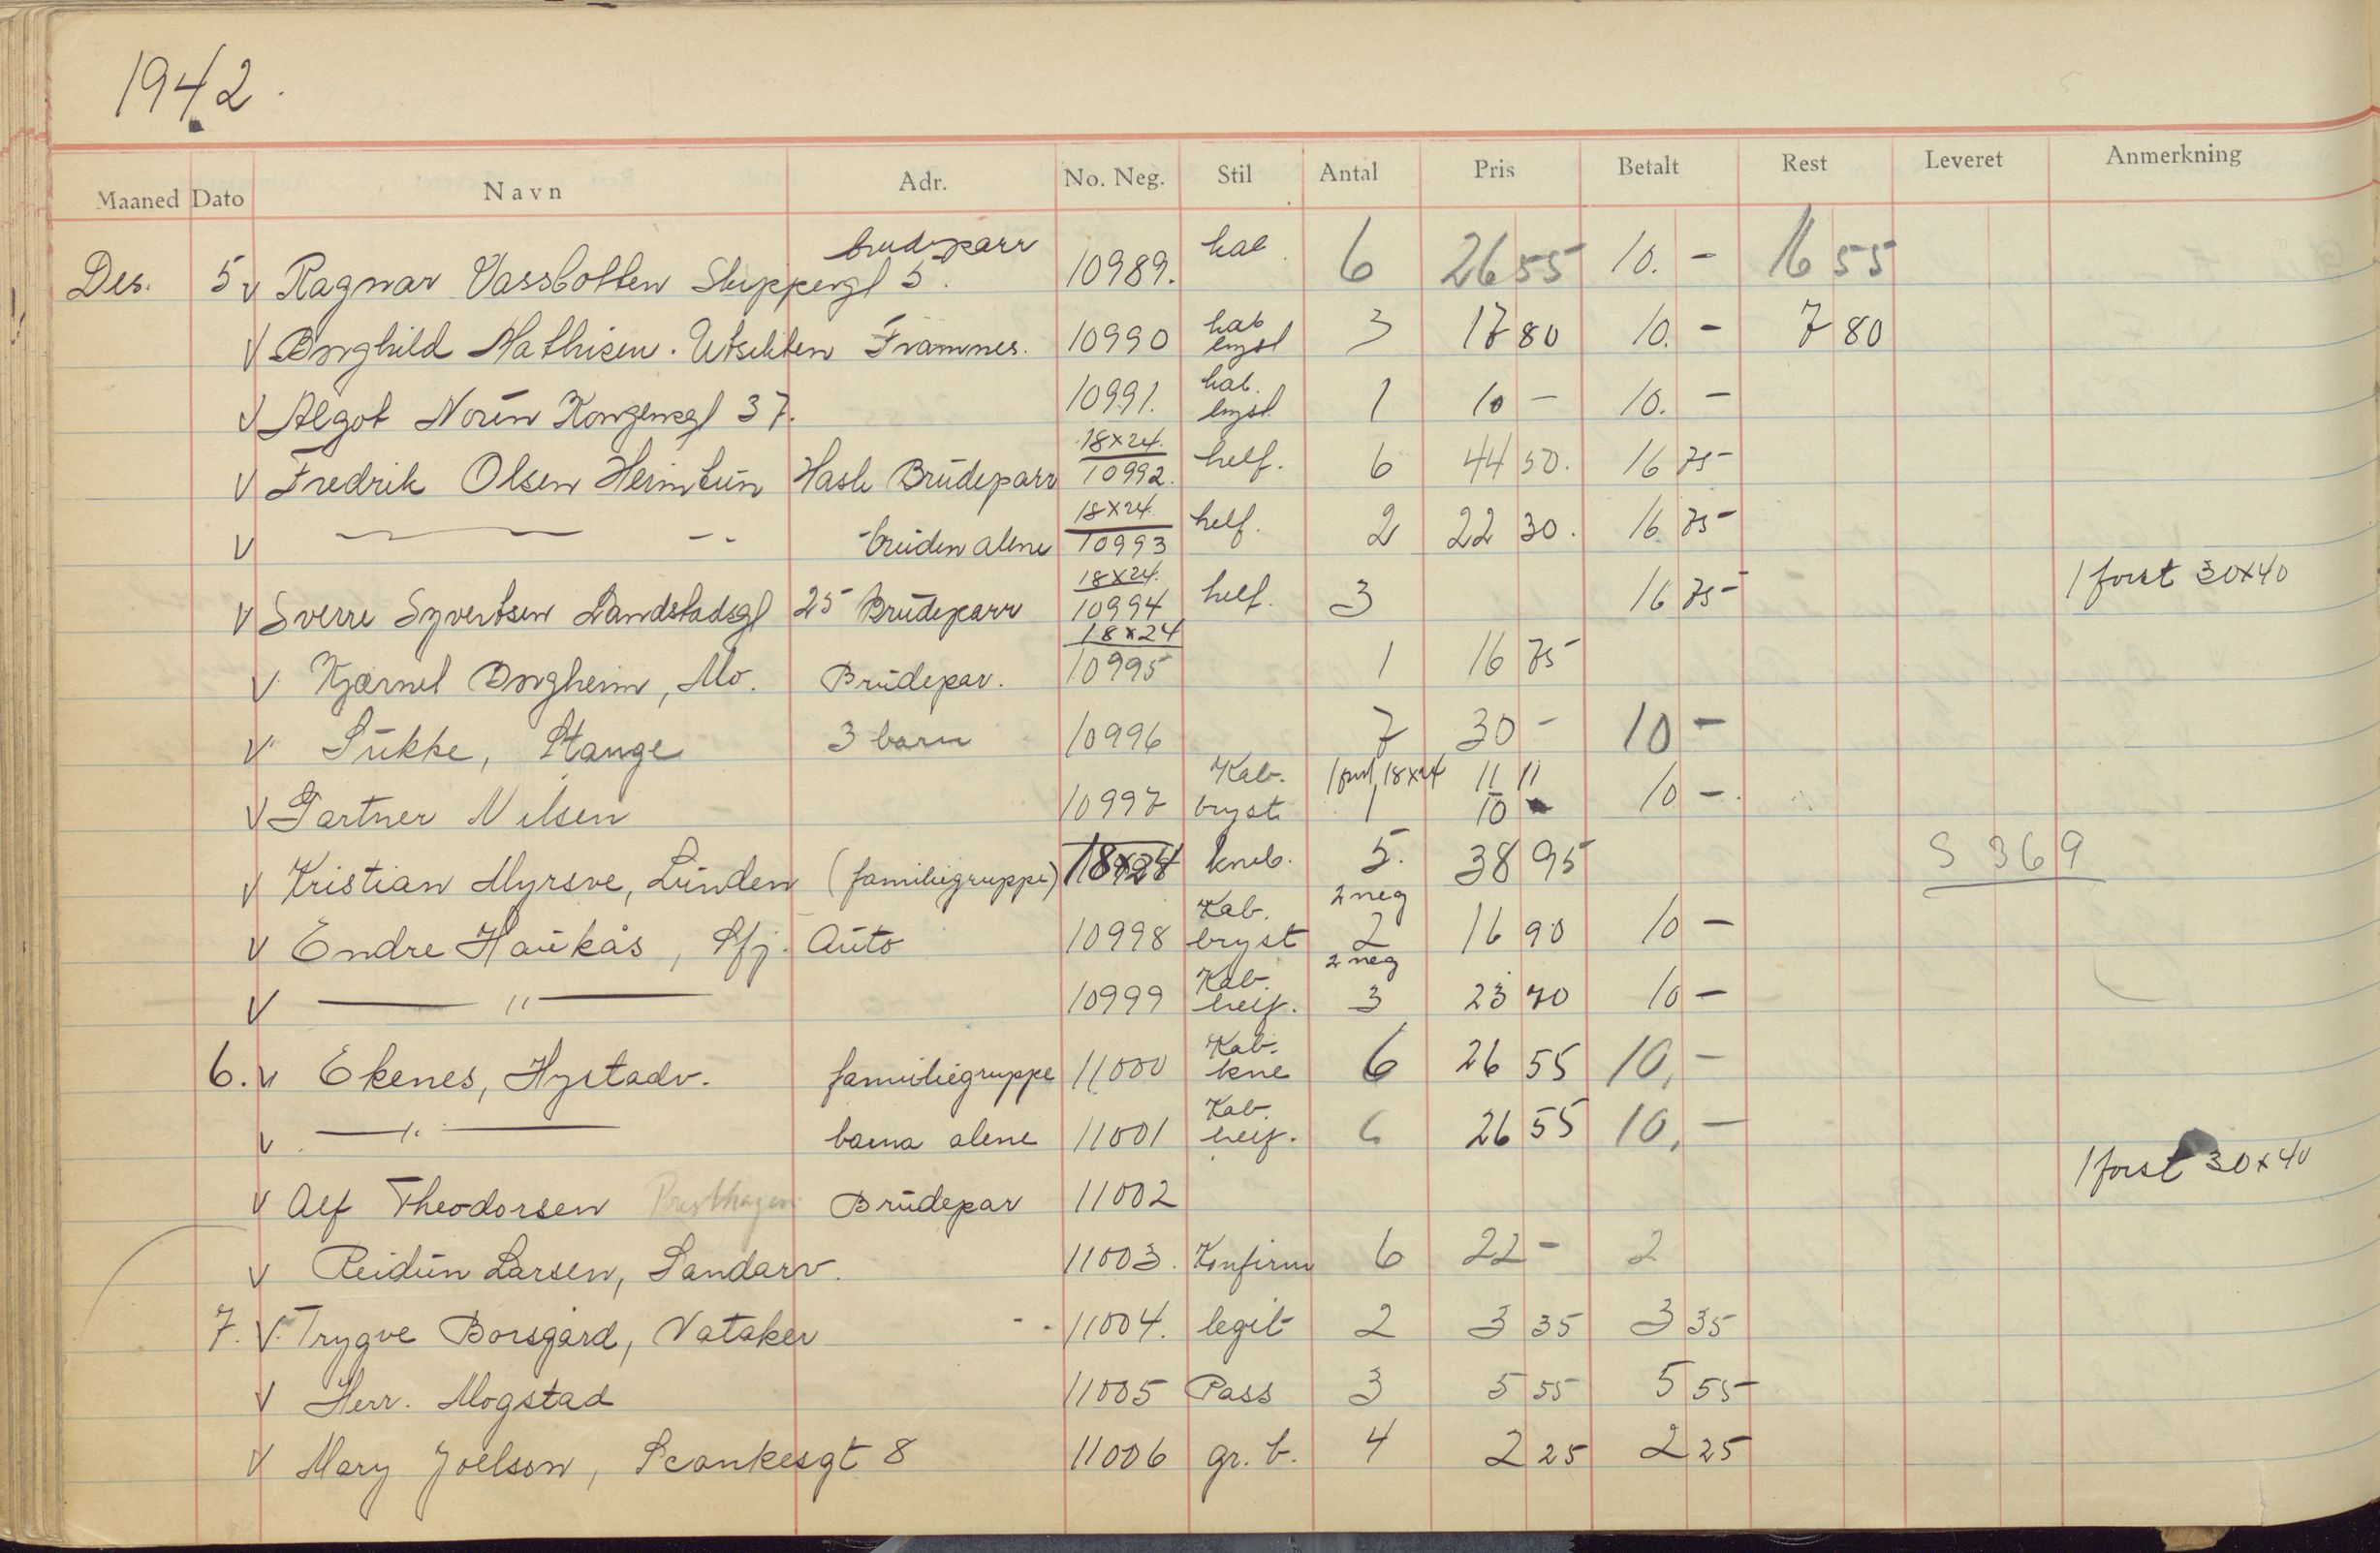 1942.
Maaned Dato Navn Adr. No. Neg. Stil Antal Pris Betalt Rest Leveret Anmerkning
brudeparr
Des. 5 v Ragnar Vassbotten Skippergt 5. 10989. kab. 6 26 55 10. - 16 55
kab
v Borghild Mathisen. Utsikten Framnes. 10990 bryst 3 17 80 10. - 7 80
kab.
v Algot Norén Kongensgt 37. 10991. bryst 1 10 - 10. -
18x24.
v Fredrik Olsen Heimtun Hasle Brudeparr 10992. helf. 6 44 50. 16 75
18x24.
v — - - bruden alene 10993 helf. 2 22 30. 16 75
18x24.
v Sverre Syvertsen Landstadsgt 25 Brudeparr 10994 helf. 3 16 75 1 forst 30x40
18x24
v Kjærnel Borgheim, Mo. Brudepar. 10995 1 16 75
v Sukke, Stange 3 barn 10996 7 30 - 10 -
Kab. 1 forst 18x24 11 11
v Gartner Nilsen 10997 bryst 1 10 10 -
v Kristian Myrsve, Lunden (familiegruppe) 18x24 kneb. 5. 38 95 S 369
Kab. 2 neg
v Endre Haukås, Sfj. Auto 10998 bryst 2 16 90 10 -
Kab. 2 neg
v — " — 10999 helf. 3 23 70 10 -
Kab.
6. v Ekenes, Hystadv. familiegruppe 11000 kne 6 26 55 10, -
Kab.
v — " — barna alene 11001 helf. 6 26 55 10, -
v Alf Theodorsen Presthagen Brudepar 11002 1 forst 30x40
v Reidun Larsen, Sandarv. 11003. Konfirm 6 22 - 2
7. v Trygve Borsgård, Vataker - - 11004. legit 2 3 35 3 35
v Herr. Mogstad 11005 Pass 3 5 55 5 55
v Mary Joelson, Scankesgt 8 11006 gr. b. 4 2 25 2 25